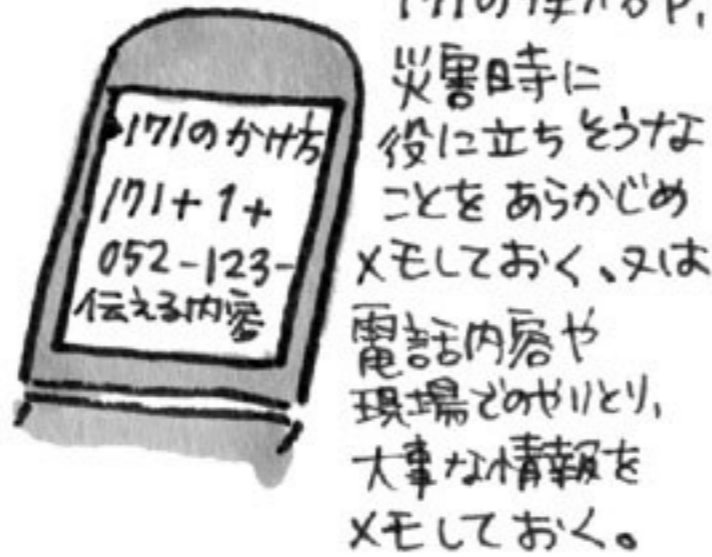 171のかけ方
171+1+
052-123-
伝える内容
災害時に
役に立ちそうな
ことをあらかじめ
メモしておく、又は
電話内容や
現場でのやりとり、
大事な情報を
メモしておく。